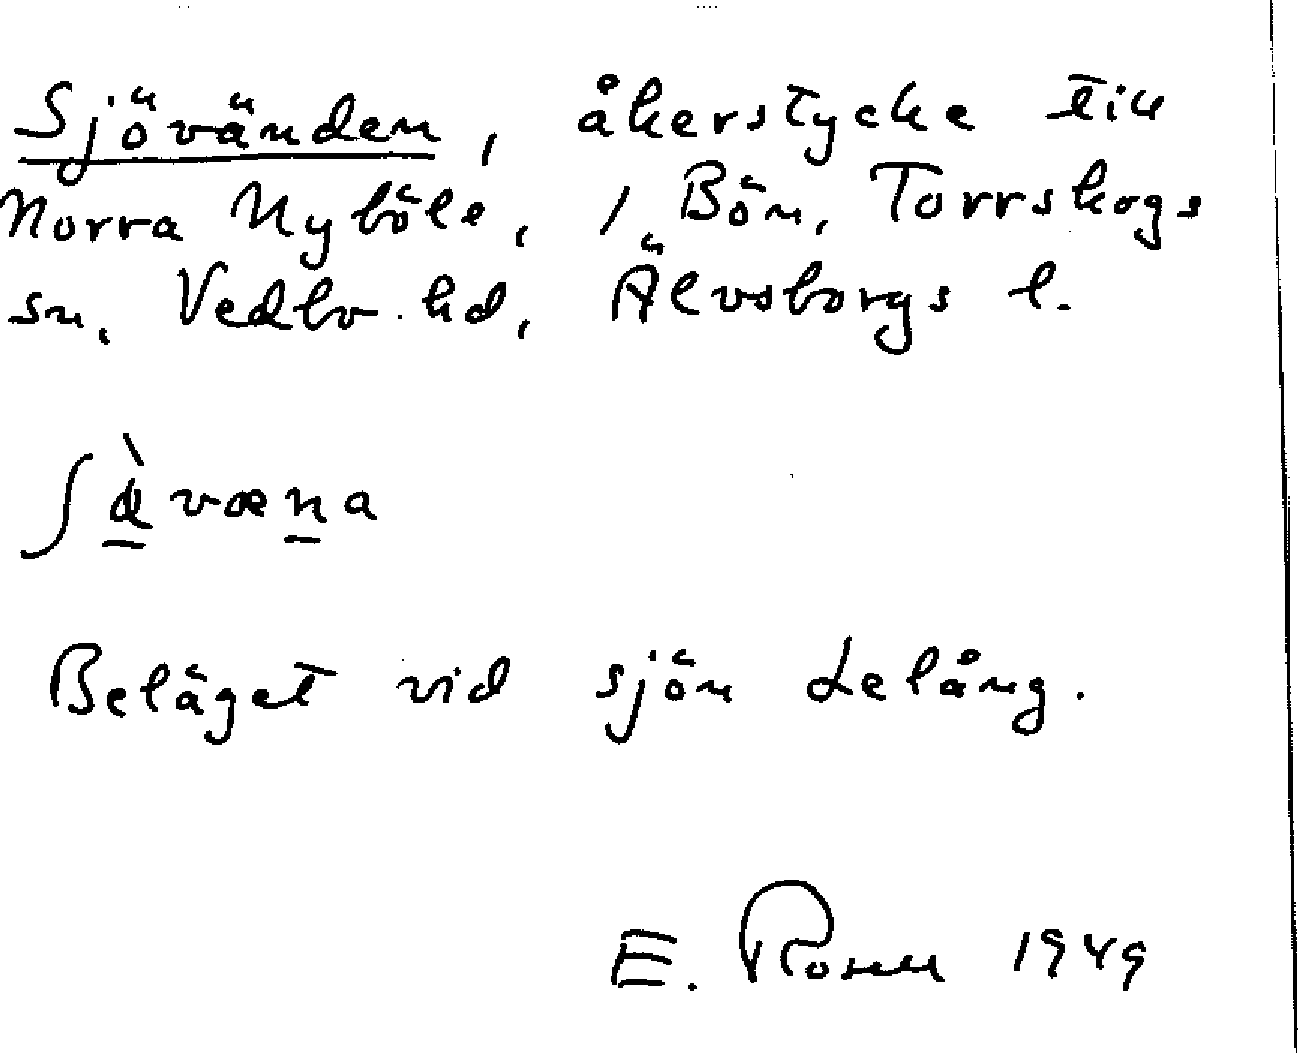 Sjövänden, åkerstycke till
Norra Nyböle, 1 Bön, Torrskogs
sn, Vedbo hd, Älvsborgs l.
væna
Beläget vid sjön Lelång.
E. Rosén 1949